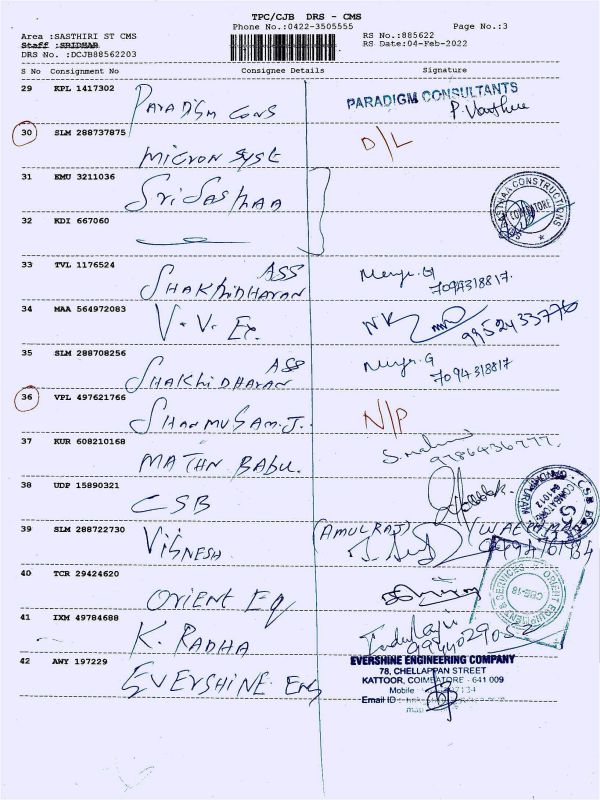 TPC/CJB DRS - CMS
Phone No.:0422-3505555 Page No.:3
Area :SASTHIRI ST CMS RS No.:885622
Staff :SRIDHAR RS Date:04-Feb-2022
DRS No. :DCJB88562203
S No Consignment No Consignee Details Signature
29 KPL 1417302 Paradigm Cons PARADIGM CONSULTANTS
30 SLM 288737875 D/L
Micron Syst
31 KMU 3211036 Sri Sasthaa
SASTHAA CONSTRUCTIONS COIMBATORE
32 KDI 667060
33 TVL 1176524 Shakhidharan ASS Menja.G
7094318817.
34 MAA 564972083 V.V. Ex. NK 9952433776
35 SLM 288708256 Shakhidharan ASS Menja.G
7094318817
36 VPL 497621766 Shanmugam.J. N/P
37 KUR 608210168 Mathn Babu. 9786436777.
38 UDP 15890321 CSB
39 SLM 288722730 Vignesh (AMULRAJ)
40 TCR 29424620 Orient Eq
ORIENT EQUIPMENT & SERVICES CBE-18
41 IXM 49784688 K. Radha
42 AWY 197229 Evershine Eng EVERSHINE ENGINEERING COMPANY
78, CHELLAPPAN STREET
KATTOOR, COIMBATORE - 641 009
Mobile
Email ID :